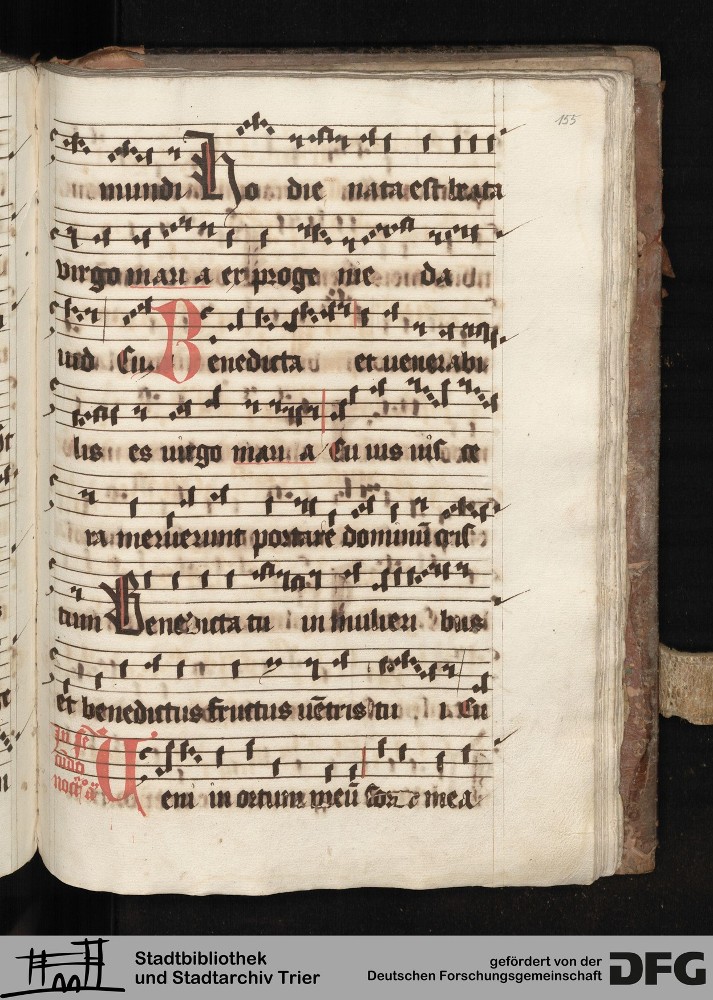 155
mundi Ho die nata est beata
virgo mari a ex proge nie da
uid Cu. Benedicta et uenerabi
lis es uirgo mari a Cu ius uisce
ra meruerunt portare dominū cris
tum Benedicta tu in mulieri bus
et benedictus fructus uētris tu i. Cu
in se
cūdo
noct
Ueni in ortum meū soror mea
Stadtbibliothek
und Stadtarchiv Trier
gefördert von der
Deutschen Forschungsgemeinschaft
DFG